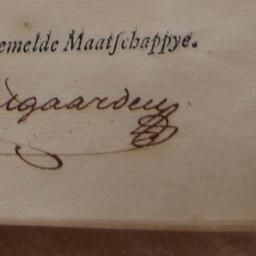 emelde Maatſchappye.
xgaarden